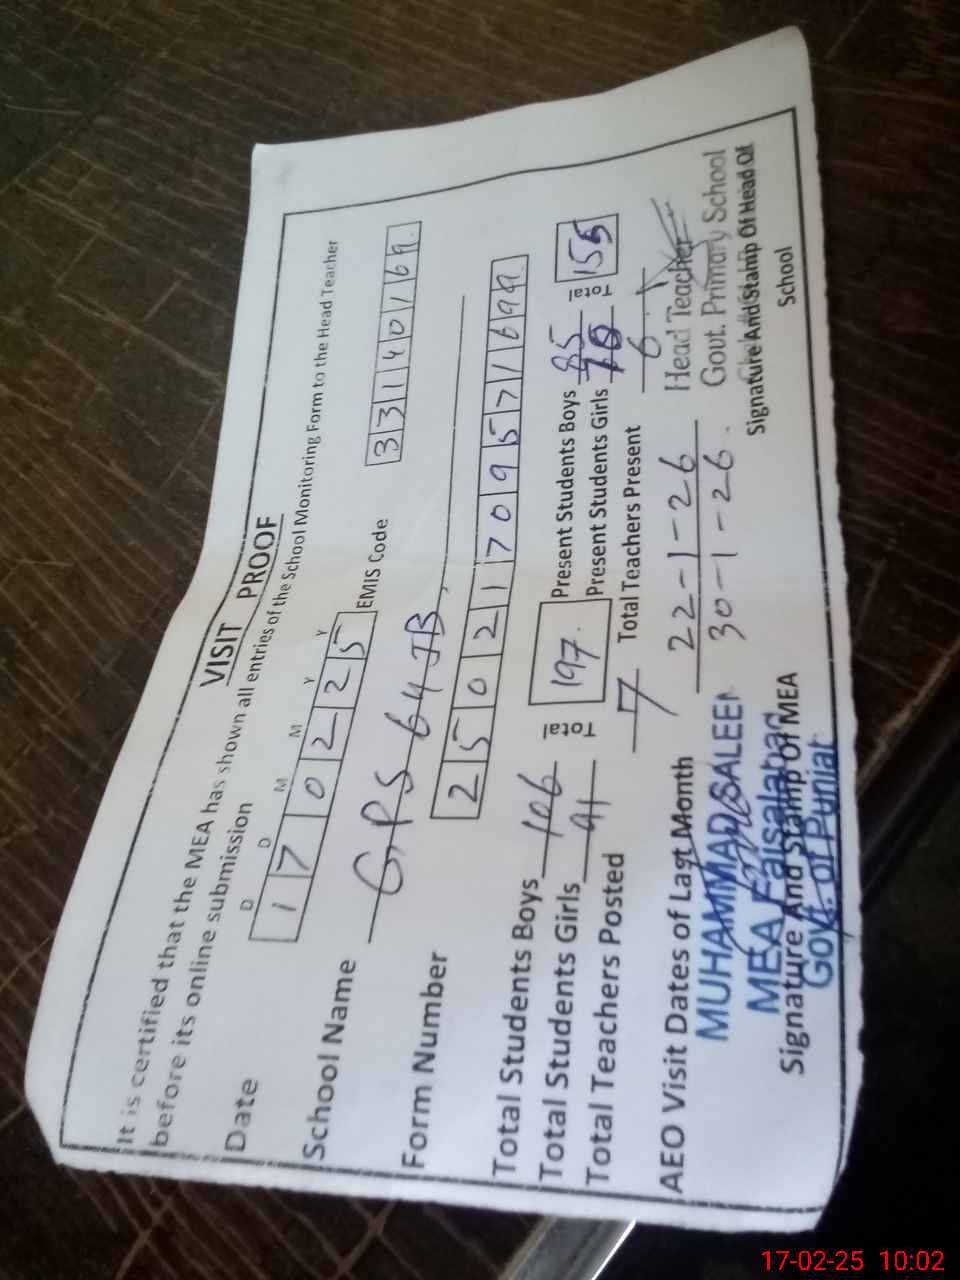 VISIT PROOF
It is certified that the MEA has shown all entries of the School Monitoring Form to the Head Teacher
before its online submission
D D M M Y Y
Date 1 7 0 2 2 5 EMIS Code 3 3 1 4 0 1 6 9
School Name GPS 64 JB
Form Number 2 5 0 2 1 7 0 9 5 7 1 6 9 9
Total Students Boys 106 Total 197 Present Students Boys 85 Total 155
Total Students Girls 91 Present Students Girls 70
Total Teachers Posted 7 Total Teachers Present 6
AEO Visit Dates of Last Month 22-1-26
30-1-26
MUHAMMAD SALEEM
MEA Faisalabad
Govt. of Punjab
Signature And Stamp Of MEA
Head Teacher
Govt. Primary School
Signature And Stamp Of Head Of
School
17-02-25 10:02